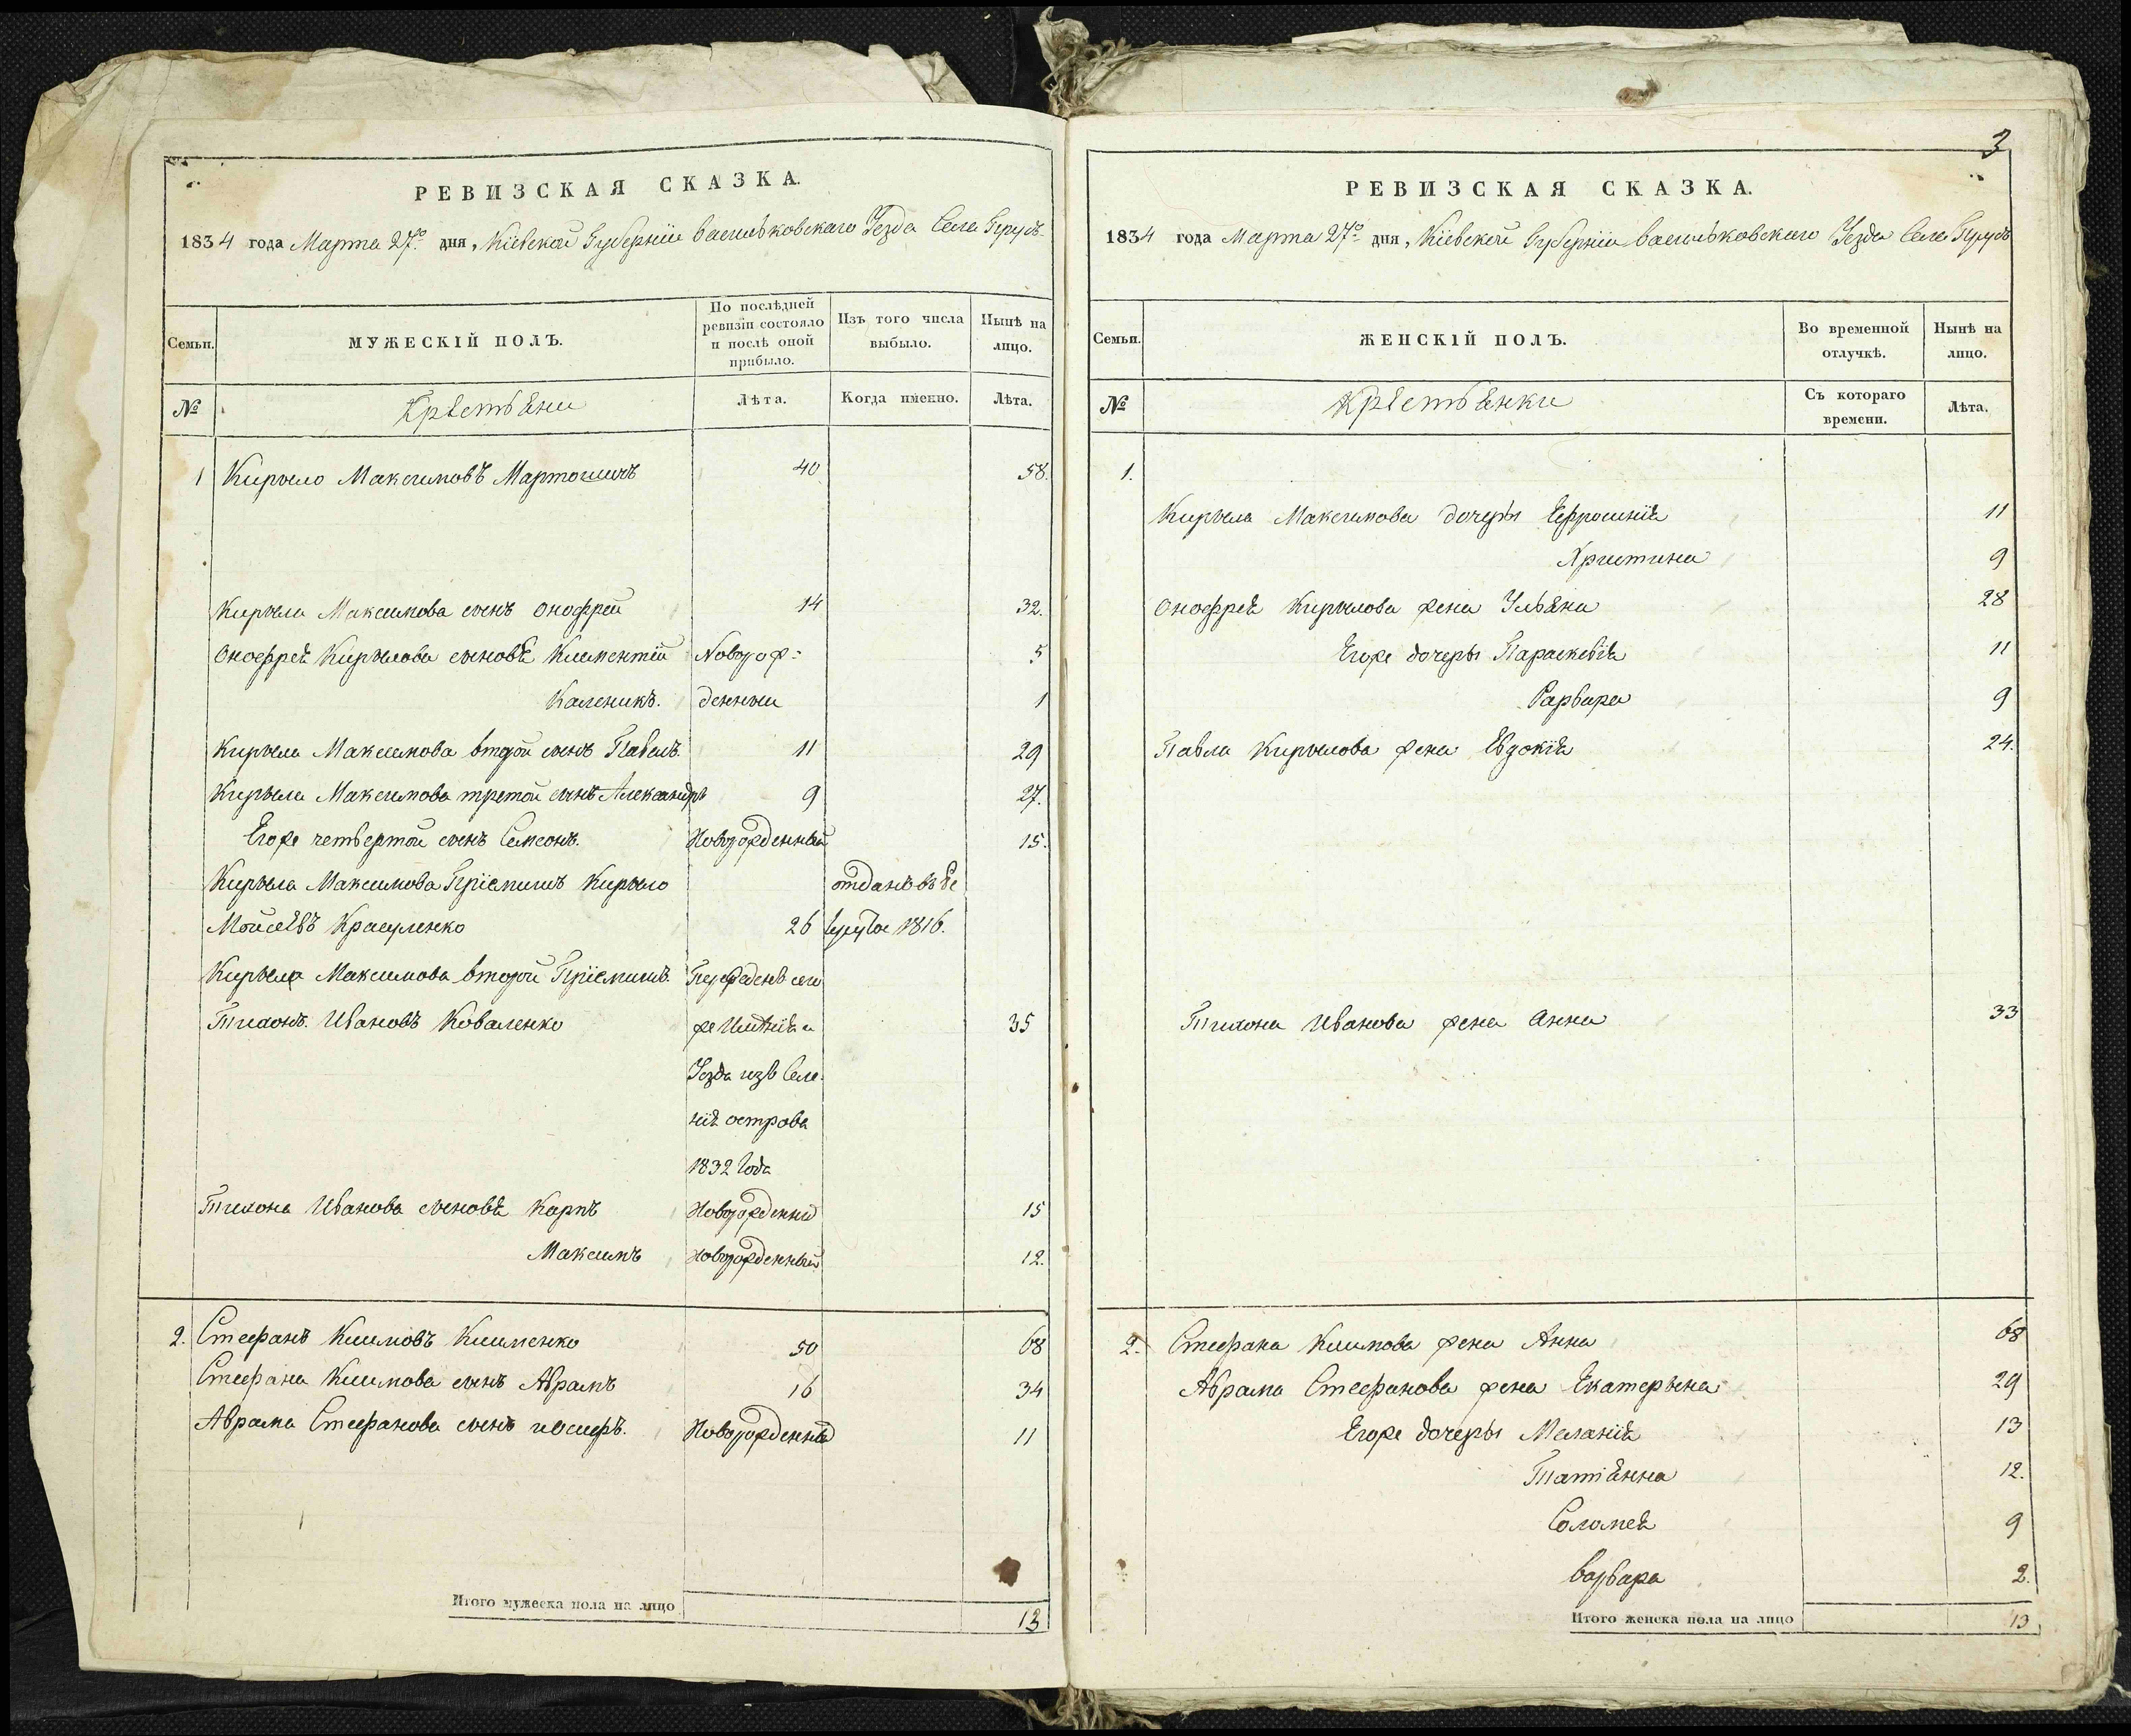 РЕВИЗСКАЯ СКАЗКА.
1834 года Марта 27го дня, Кіевской Губерніи Васильковскаго Уезда Села Прусъ
Семьи.
МУЖЕСКІЙ ПОЛЪ.
По послѣдней
ревизіи состояло
и послѣ оной
прибыло.
Изъ того числа
выбыло.
Нынѣ на
лицо.
№
Крестьяни
Лѣта.
Когда именно.
Лѣта.
1 Кирыло Максимовъ 40 58.
Кирыла Максимова сынъ Онофрей 14 32.
Онофрея Кирылова сыновя Климентій Новорож= 5
Каленикъ. денныи 1
Кирыла Максимова второй сынъ Павелъ 11 29
Кирыла Максимова третой сынъ Александръ 9 27.
Егоже четвертой сынъ Семеонъ. Новорожденный 15.
Кирыла Максимова Пріемишъ Кирыло отданъ въ Ре
Мойсеевъ 26 круты 1816.
Кирыла Максимова второй Пріемишъ. сего
Тихонъ Ивановъ Коваленко же Имѣнія и 35
Уезда изъ Селе-
нія острова
1832 Года
Тихона Иванова сыновя Карпъ Новорожденный 15
Максимъ Новорожденный 12.
2. Стефанъ Климовъ Клименко 50 68
Стефана Климова сынъ Аврамъ 16 34
Аврама Стефанова сынъ иосифъ. Новорожденный 11
Итого мужеска пола на лицо 13
3
РЕВИЗСКАЯ СКАЗКА.
1834 года Марта 27го дня, Кіевской Губерніи Васильковскаго Уезда Села Прусъ
Семьи.
ЖЕНСКІЙ ПОЛЪ.
Во временной
отлучкѣ.
Нынѣ на
лицо.
№
Крестьянки
Съ котораго
времени.
Лѣта.
1.
Кирыла Максимова дочеры Ефросинія 11
Христина 9
Онофрея Кирылова жена Ульяна 28
Егоже дочеры Параскевія 11
Варвара 9
Павла Кирылова жена Евдокія 24.
Тихона Иванова жена Анна 33
2. Стефана Климова жена Анна 68
Аврама Стефанова жена Екатерына 29
Егоже дочеры Меланія 13
Татіянна 12.
Соломея 9
Варвара 2.
Итого женска пола на лицо 13